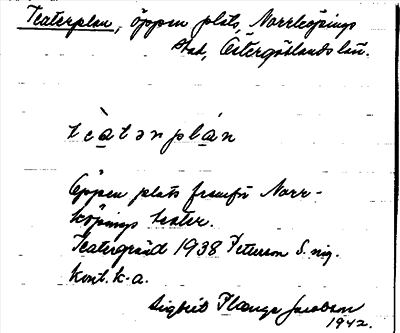 Teaterplan, öppen plats, Norrköpings
stad, Östergötlands län.
teàtərplán
Öppen plats framför Norr-
köpings teater.
Teatergränd 1938 Peterson S.
Kont. k-a.
Sigbrit Plænge Jacobson
1942.